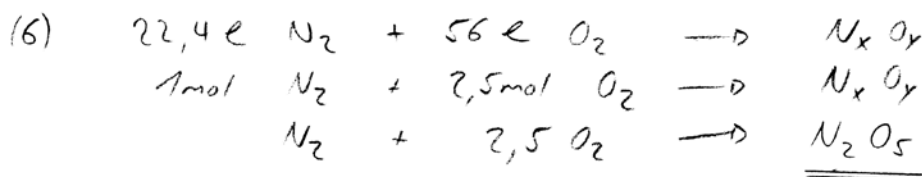 (6) 22,4 l N₂ + 56 l O₂ → NₓOᵧ
1mol N₂ + 2,5mol O₂ → NₓOᵧ
N₂ + 2,5 O₂ → N₂O₅